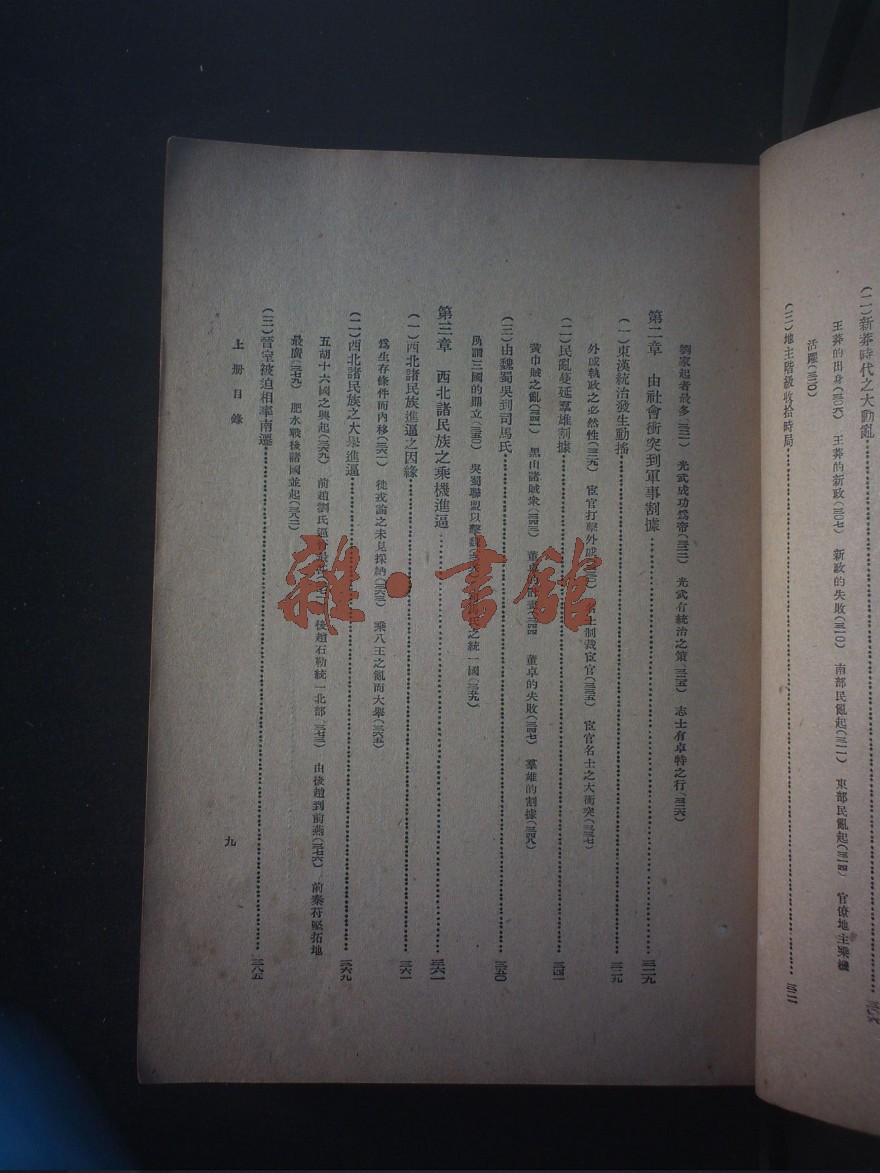 (二)新莽時代之大動亂
王莽的出身(三〇六) 王莽的新政(三〇七) 新政的失敗(三一〇) 南部民亂起(三一一) 東部民亂起(三一四) 官僚地主乘機
活躍(三二〇)
(三)地主階級收拾時局 三二一
劉家起者最多(三二一) 光武成功爲帝(三二二) 光武有統治之策(三二五) 志士有卓特之行(三二六)
第二章 由社會衝突到軍事割據 三二九
(一)東漢統治發生動搖 三二九
外戚執政之必然性(三二九) 宦官打擊外戚 制裁宦官(三三五) 宦官名士之大衝突(三三七)
(二)民亂蔓延羣雄割據 三四一
黃巾賊之亂(三四一) 黑山諸賊衆(三四三) 董卓 董卓的失敗(三四七) 羣雄的割據(三四八)
(三)由魏蜀吳到司馬氏 三五〇
所謂三國的鼎立(三五〇) 吳蜀聯盟以擊魏 氏之統一國(三五九)
第三章 西北諸民族之乘機進逼 三六一
(一)西北諸民族進逼之因緣 三六一
爲生存條件而內移(三六一) 徙戎論之未見採納(三六三) 乘八王之亂而大舉(三六五)
(二)西北諸民族之大舉進逼 三六九
五胡十六國之興起(三六九) 前趙劉氏逼 後趙石勒統一北部(三七三) 由後趙到前燕(三七六) 前秦苻堅拓地
最廣(三七九) 肥水戰後諸國並起(三八二)
(三)晉室被迫相率南遷 三八五
上册目錄
九
雜·書館